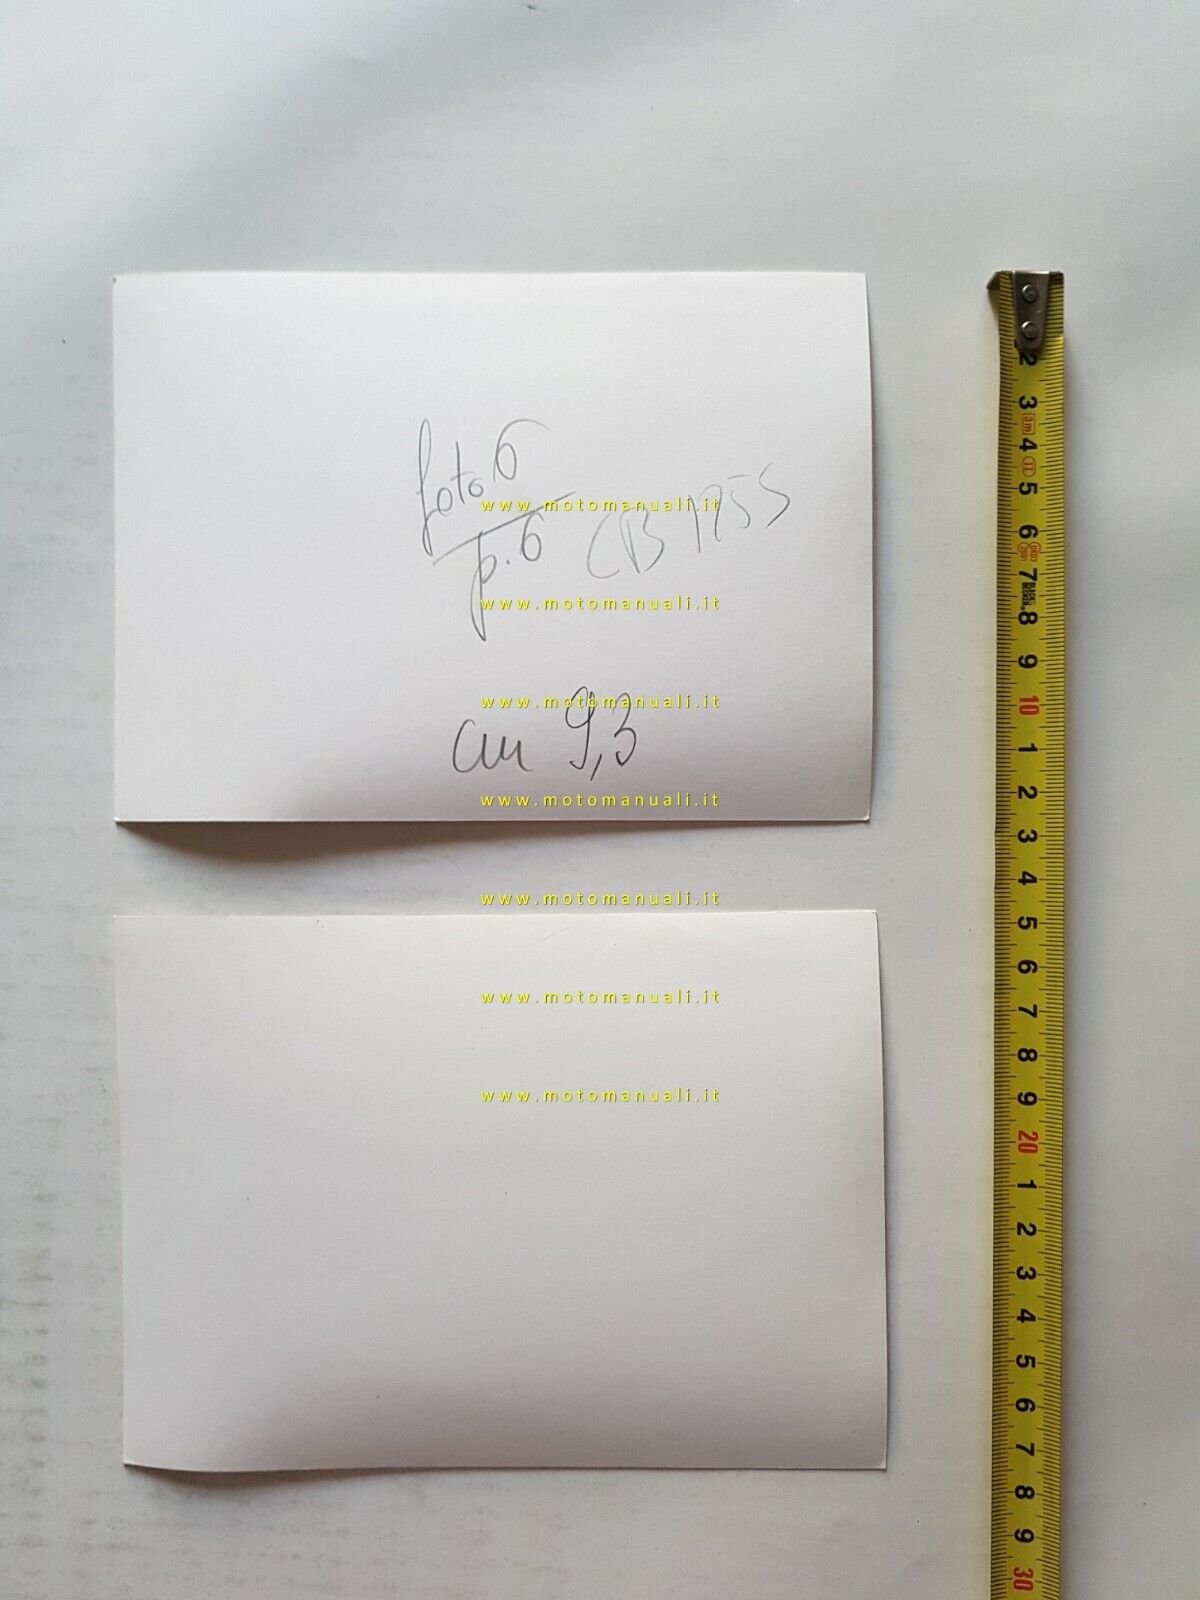 foto 6
p. 6 CB 125S
www.motomanuali.it
www.motomanuali.it
www.motomanuali.it
cm 9,3
www.motomanuali.it
www.motomanuali.it
www.motomanuali.it
www.motomanuali.it
2
3
3m
4
II
5
6
7
8
9
10
1
2
3
4
5
6
7
8
9
20
1
2
3
4
5
6
7
8
9
30